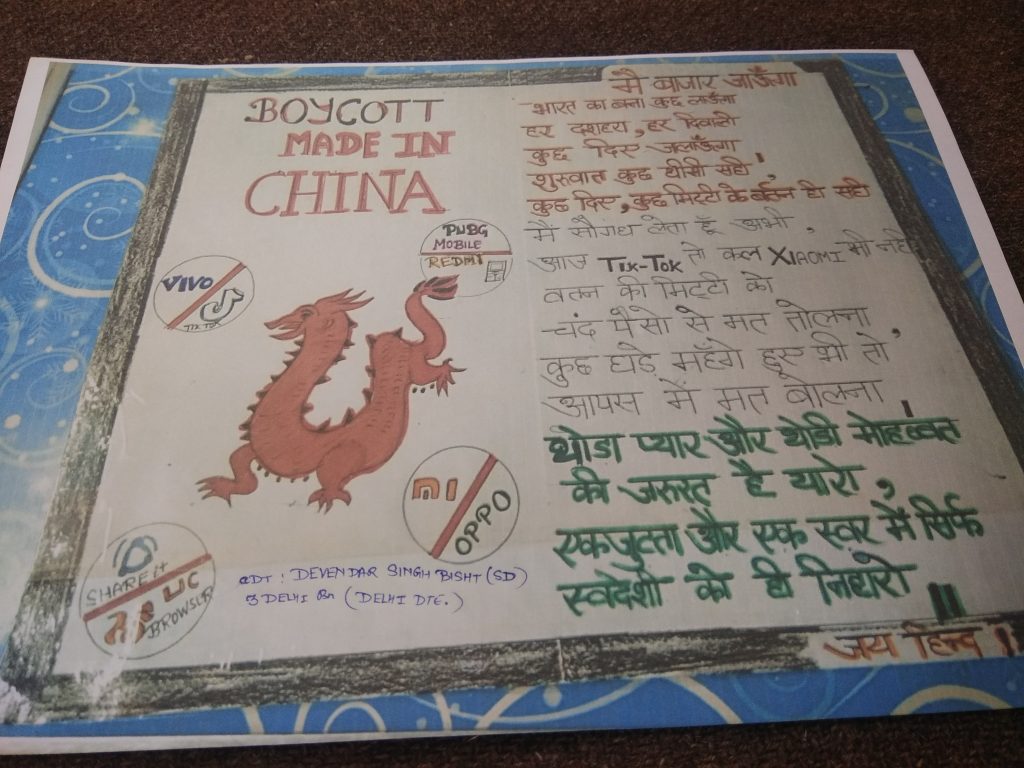 BOYCOTT
MADE IN
CHINA
VIVO
TIK TOK
PUBG
MOBILE
REDMI
MI
OPPO
SHARE it
UC
BROWSER
CDT : DEVENDAR SINGH BISHT (SD)
3 DELHI Bn (DELHI DTE.)
मै बाजार जाऊँगा
भारत का बना कुछ लाऊँगा
हर दशहरा, हर दिवाली
कुछ दिए जलाऊँगा
शुरुवात कुछ धीमी सही,
कुछ दिए, कुछ मिट्टी के बर्तन ही सही
मैं सौगंध लेता हूँ अभी,
आज TIK-TOK तो कल XIAOMI भी नहीं
वतन की मिट्टी को
चंद पैसो से मत तोलना
कुछ थोड़े महँगे हुए भी तो,
आपस में मत बोलना
थोडा प्यार और थोडी मोहब्बत
की जरुरत है यारो,
एकजुटता और एक स्वर में सिर्फ
स्वदेशी को ही निहारो ||
जय हिन्द !